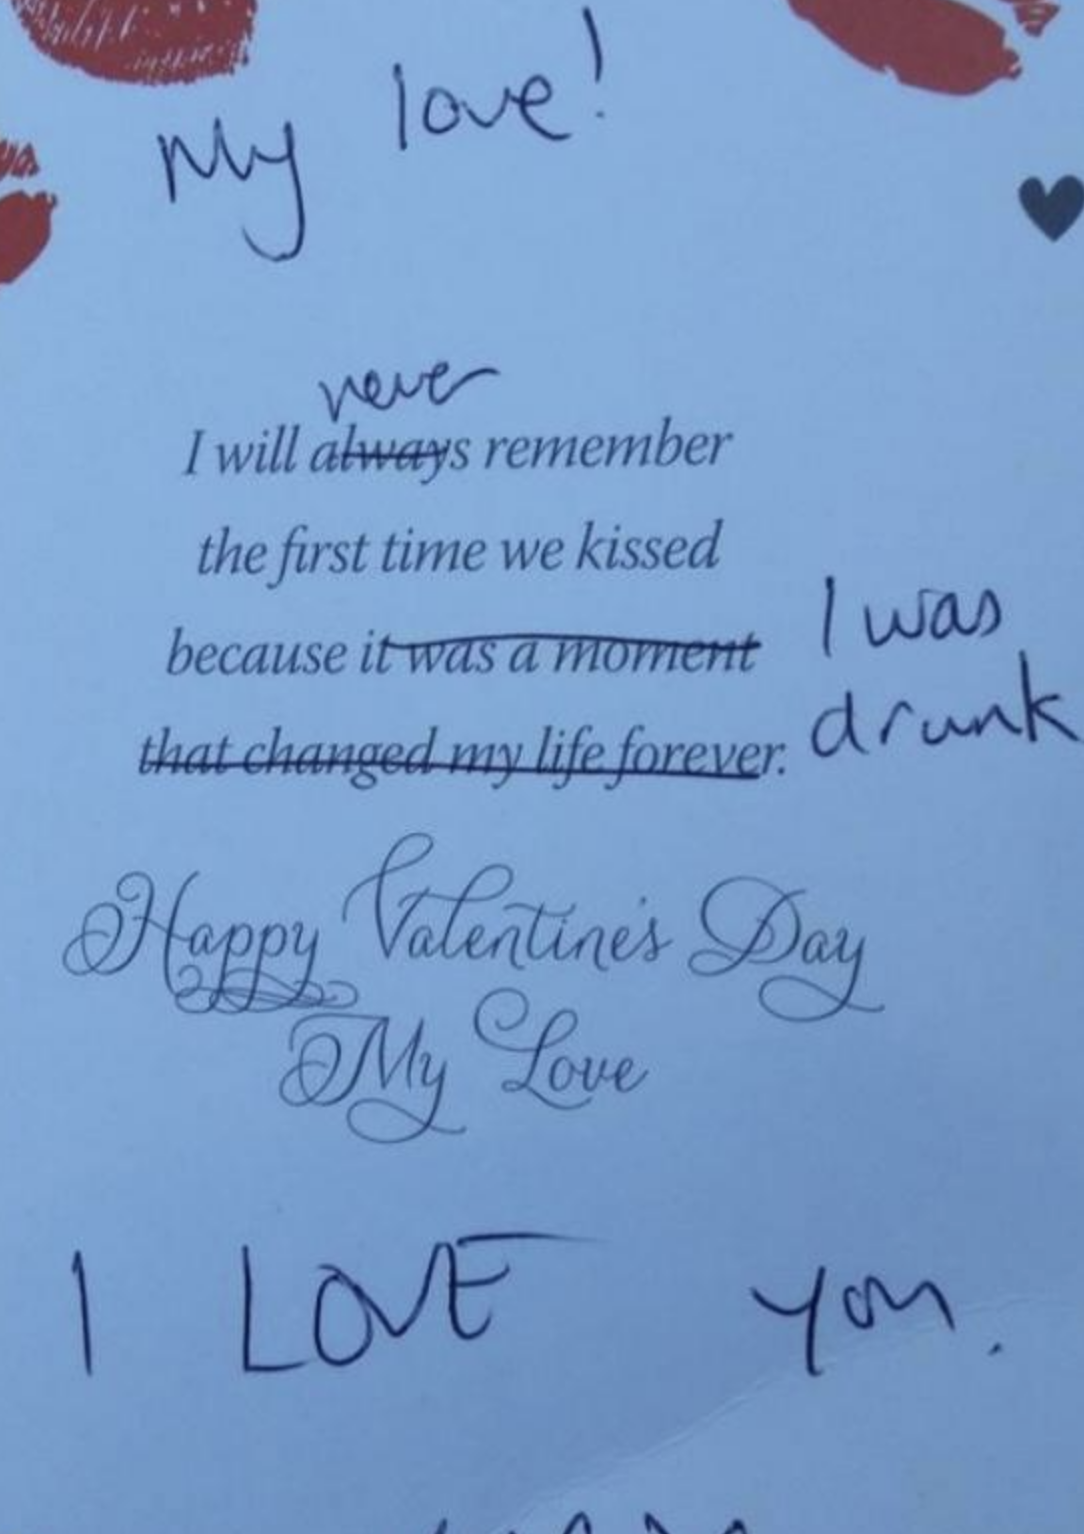 My love!
never
I will always remember
the first time we kissed
because it was a moment
I was
that changed my life forever.
drunk
Happy Valentine's Day
My Love
I LOVE you.